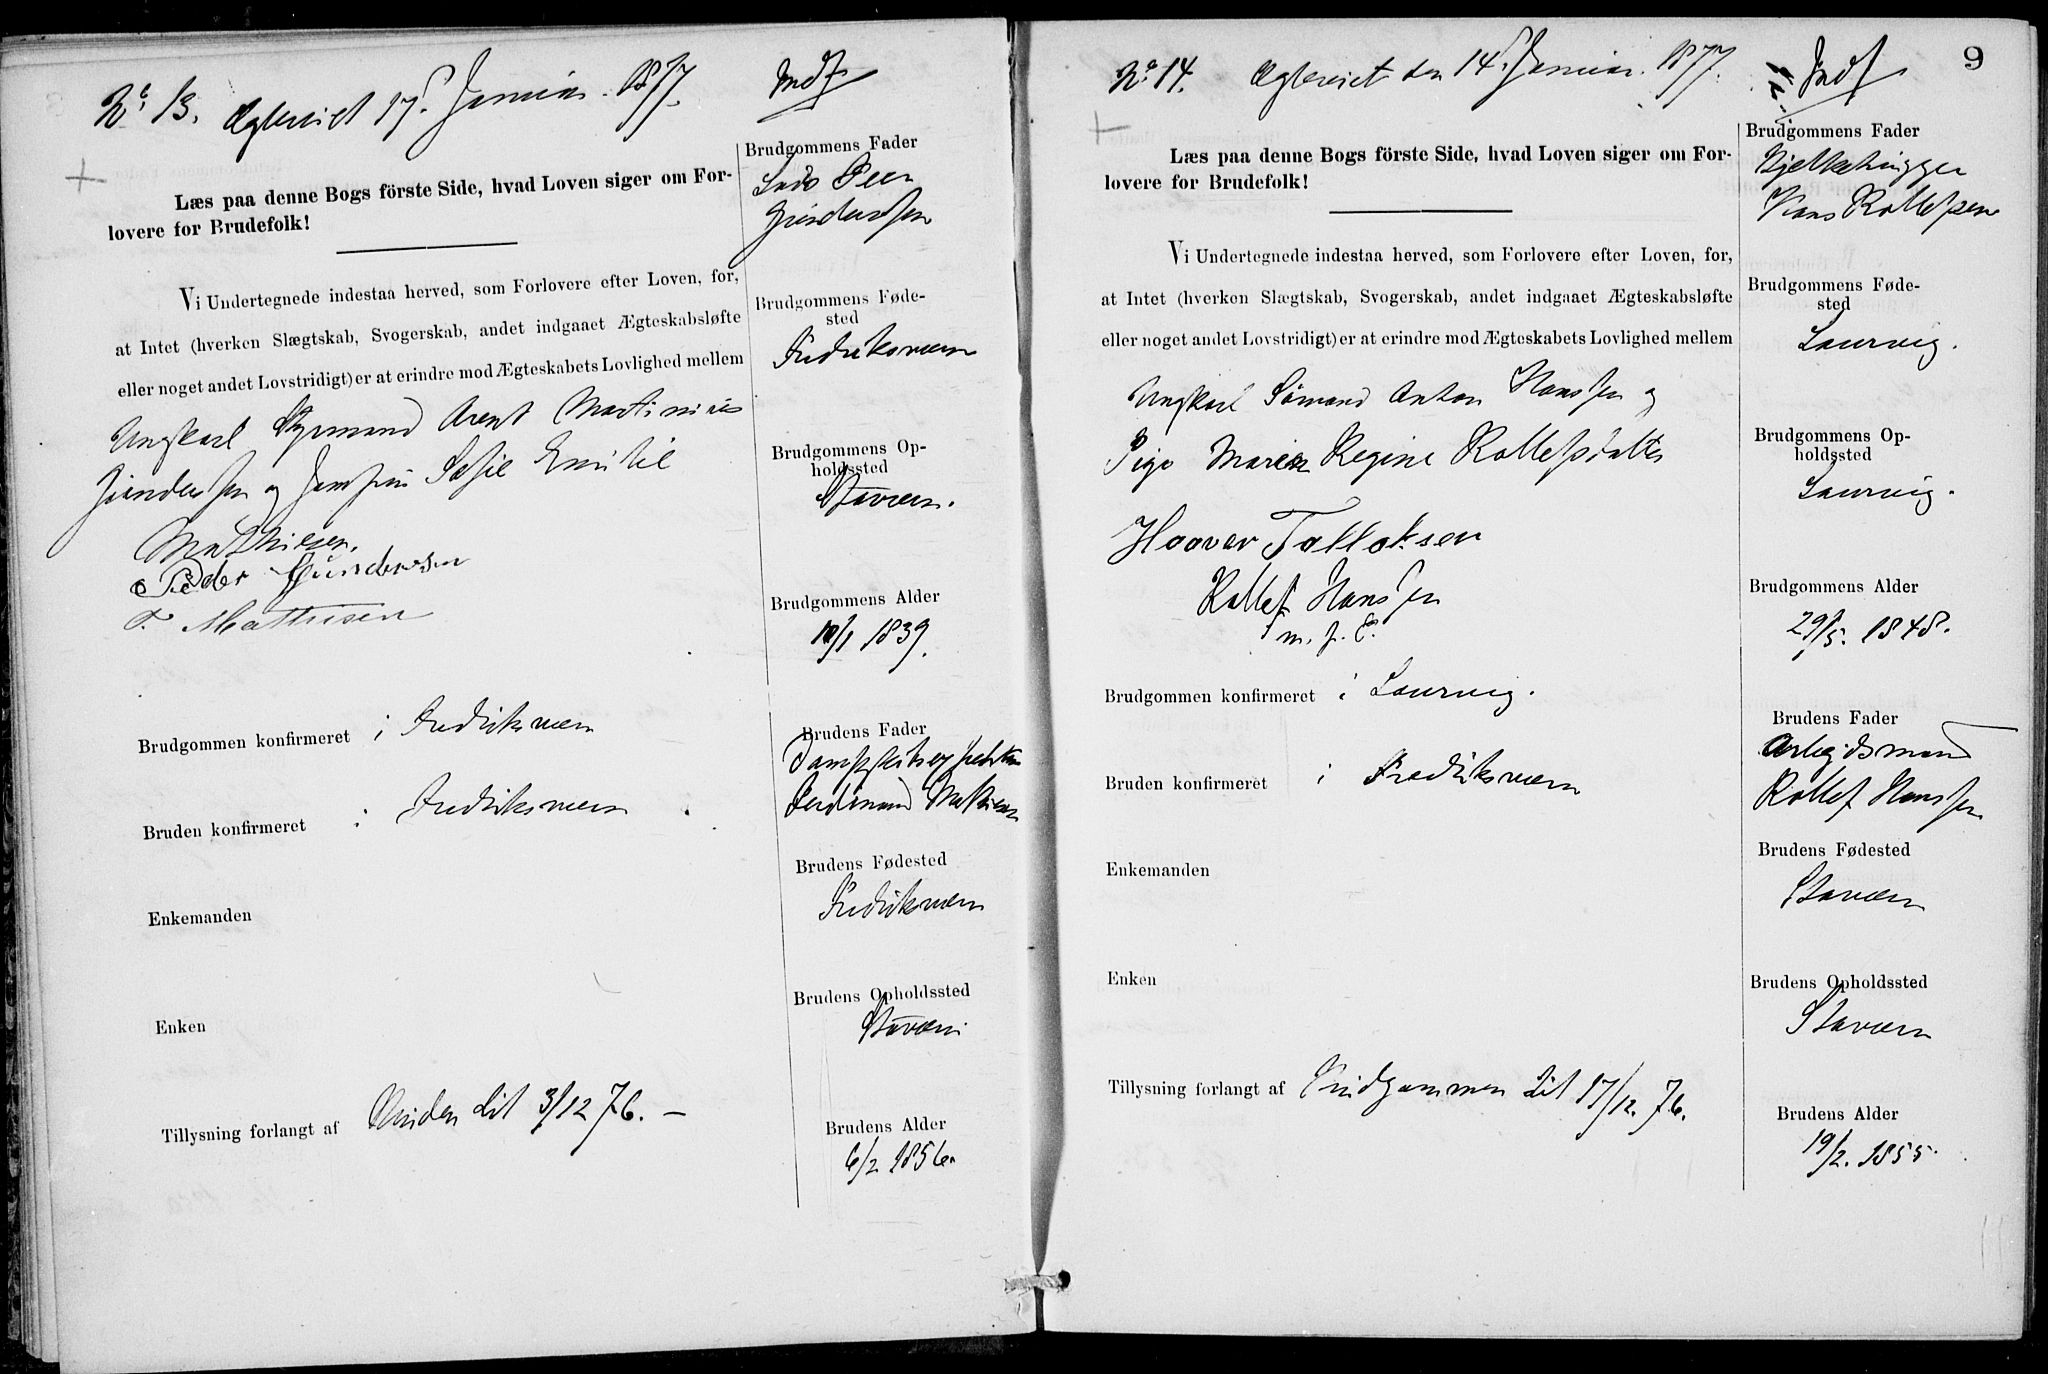 No 13. Ægteviet 17. Januar 1877. Indf
Læs paa denne Bogs förste Side, hvad Loven siger om For-
lovere for Brudefolk!
Vi Undertegnede indestaa herved, som Forlovere efter Loven, for,
at Intet (hverken Slægtskab, Svogerskab, andet indgaaet Ægteskabsløfte
eller noget andet Lovstridigt) er at erindre mod Ægteskabets Lovlighed mellem
Ungkarl Styrmand Arent Martinius
Gundersen og Jomfru Sofie Emilie
Mathiesen.
Peder Gundersen
F. Mathisen
Brudgommen konfirmeret i Fredriksværn
Bruden konfirmeret i Fredriksværn
Enkemanden
Enken
Tillysning forlangt af Bruden dit 3/12 76. –
Brudgommens Fader
Lods Peer
Gundersen
Brudgommens Føde-
sted
Fredriksværn
Brudgommens Op-
holdssted
Stavern.
Brudgommens Alder
10/1 1839.
Brudens Fader
Ferdinand Mathiesen
Brudens Fødested
Fredriksværn
Brudens Opholdssted
Stavern
Brudens Alder
6/2 1856.
9
No 14. Ægteviet den 14. Januar 1877. Indf
Læs paa denne Bogs förste Side, hvad Loven siger om For-
lovere for Brudefolk!
Vi Undertegnede indestaa herved, som Forlovere efter Loven, for,
at Intet (hverken Slægtskab, Svogerskab, andet indgaaet Ægteskabsløfte
eller noget andet Lovstridigt) er at erindre mod Ægteskabets Lovlighed mellem
Ungkarl Sømand Anton Hanssen og
Pige Maren Regine Rollefsdatter
Haaver Tollaksen
Rollef Hanssen
m. f. P.
Brudgommen konfirmeret i Laurvig.
Bruden konfirmeret i Fredriksværn
Enkemanden
Enken
Tillysning forlangt af Brudgommen dit 17/12. 76.
Brudgommens Fader
Bjelkehugger
Hans Rollefsen
Brudgommens Føde-
sted
Laurvig.
Brudgommens Op-
holdssted
Laurvig.
Brudgommens Alder
29/5. 1848.
Brudens Fader
Arbeidsmand
Rollef Hanssen
Brudens Fødested
Stavern
Brudens Opholdssted
Stavern
Brudens Alder
19/2. 1855.